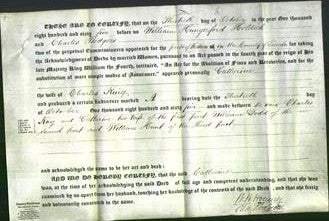 THESE ARE TO CERTIFY, that on the Thirtieth day of October in the year One thousand
eight hundred and sixty five before us William Hungerford
and Charles
two of the perpetual Commissioners appointed for the in the County of for taking
the Acknowledgment of Deeds by married Women, pursuant to an Act passed in the fourth year of the reign of His
late Majesty King William the Fourth, intituled, "An Act for the Abolition of Fines and Recoveries, and for the
substitution of more simple modes of Assurance," appeared personally Catherine
the wife of Charles
and produced a certain Indenture marked A bearing date the Thirtieth
day of October One thousand eight hundred and sixty five and made between the said Charles
and Catherine his wife of the first part William of the
second part and William of the third part
and acknowledged the same to be her act and deed:
AND WE DO HEREBY CERTIFY, that the said Catherine
was, at the time of her acknowledging the said Deed, of full age and competent understanding, and that she was
examined by us apart from her husband, touching her knowledge of the contents of the said Deed, and that she freely
and voluntarily consented to the same.